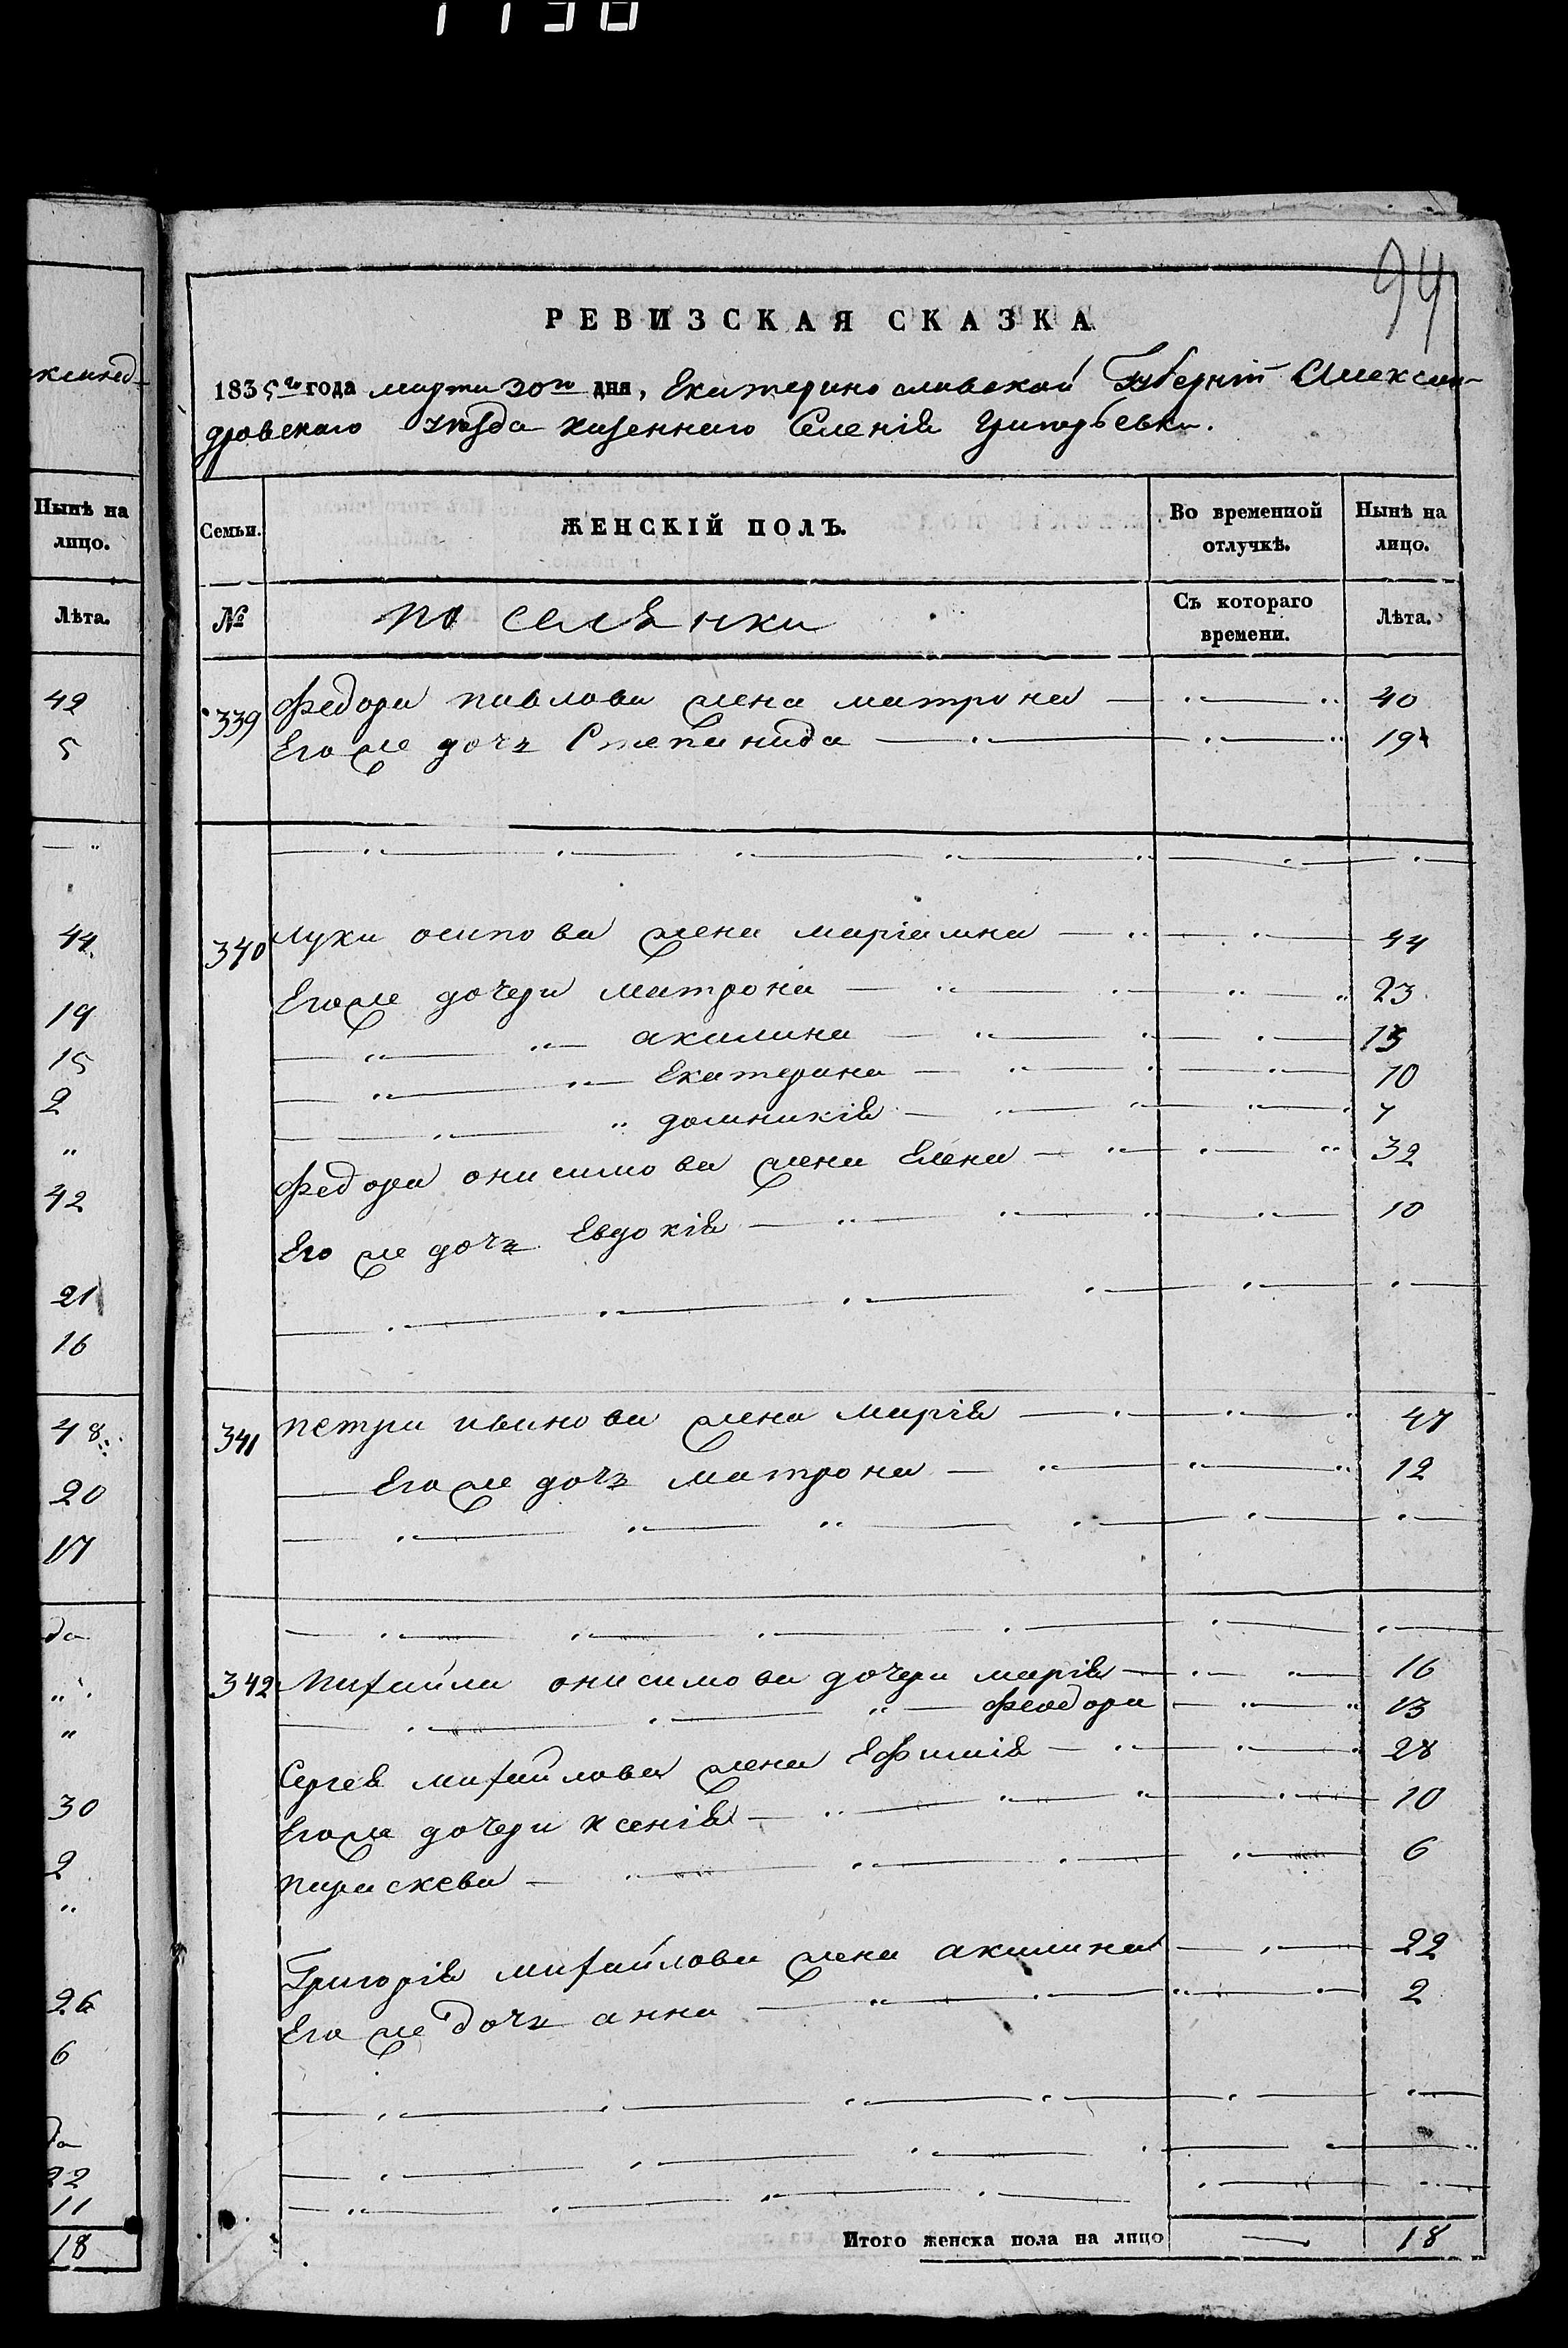 1138
94
РЕВИЗСКАЯ СКАЗКА
1835го года марта 30го дня, Екатеринославской Губерніи Алексан-
дровскаго уѣзда казеннаго Селенія Григорьевки.
Семьи.
ЖЕНСКІЙ ПОЛЪ.
Во временной отлучкѣ.
Нынѣ на лицо.
№
поселянки
Съ котораго времени.
Лѣта.
339 Федора павлова жена матрона 40
Его же дочь Степанида 19
340 Луки осипова жена маріамна 44
Его же дочери матрона 23
акилина 13
Екатерина 10
домникія 7
Федора онисимова жена Елена 32
Его же дочь Евдокія 10
341 петра иванова жена марія 47
Его же дочь матрона 12
342 михайла онисимова дочери марія 16
Феодора 13
Сергея михайлова жена Ефимія 28
Его же дочери ксенія 10
параскева 6
Григорія михайлова жена акилина 22
Его же дочь анна 2
Итого женска пола на лицо 18
Нынѣ на лицо.
Лѣта.
42
5
44
19
15
2
42
21
16
48
20
17
30
2
26
6
22
11
18